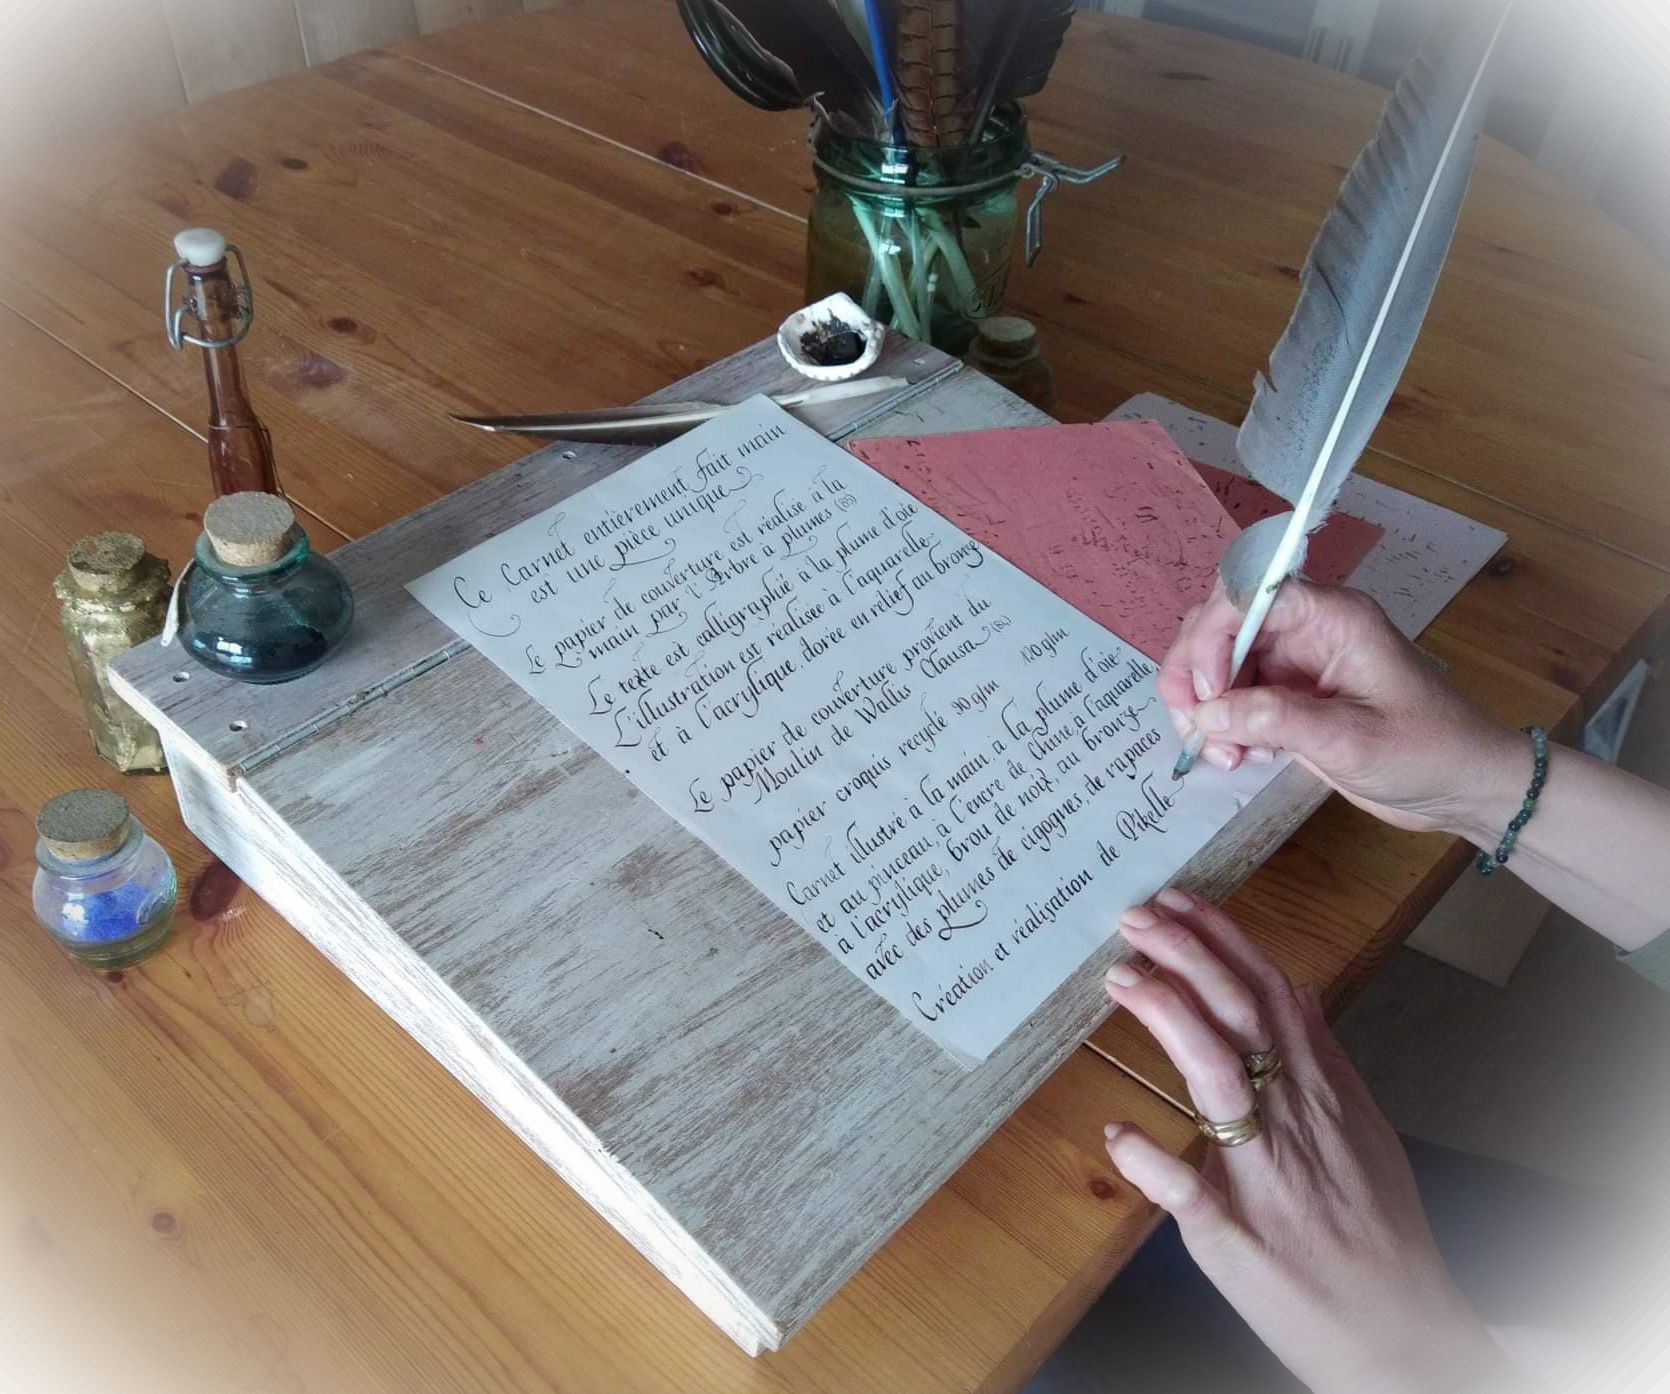 Ce Carnet entièrement fait main
est une pièce unique
Le papier de couverture est réalisé à la
main par l'Arbre à plumes (85)
Le texte est calligraphié à la plume d'oie
L'illustration est réalisée à l'aquarelle
et à l'acrylique, dorée en relief au bronze
Le papier de couverture provient du
Moulin de Wallis Clausa
papier croquis recyclé 90 g/m 120 g/m
Carnet illustré à la main, à la plume d'oie
et au pinceau, à l'encre de Chine, à l'aquarelle,
à l'acrylique, brou de noix, au bronze
avec des plumes de cigognes, de rapaces
Création et réalisation de Pikelle